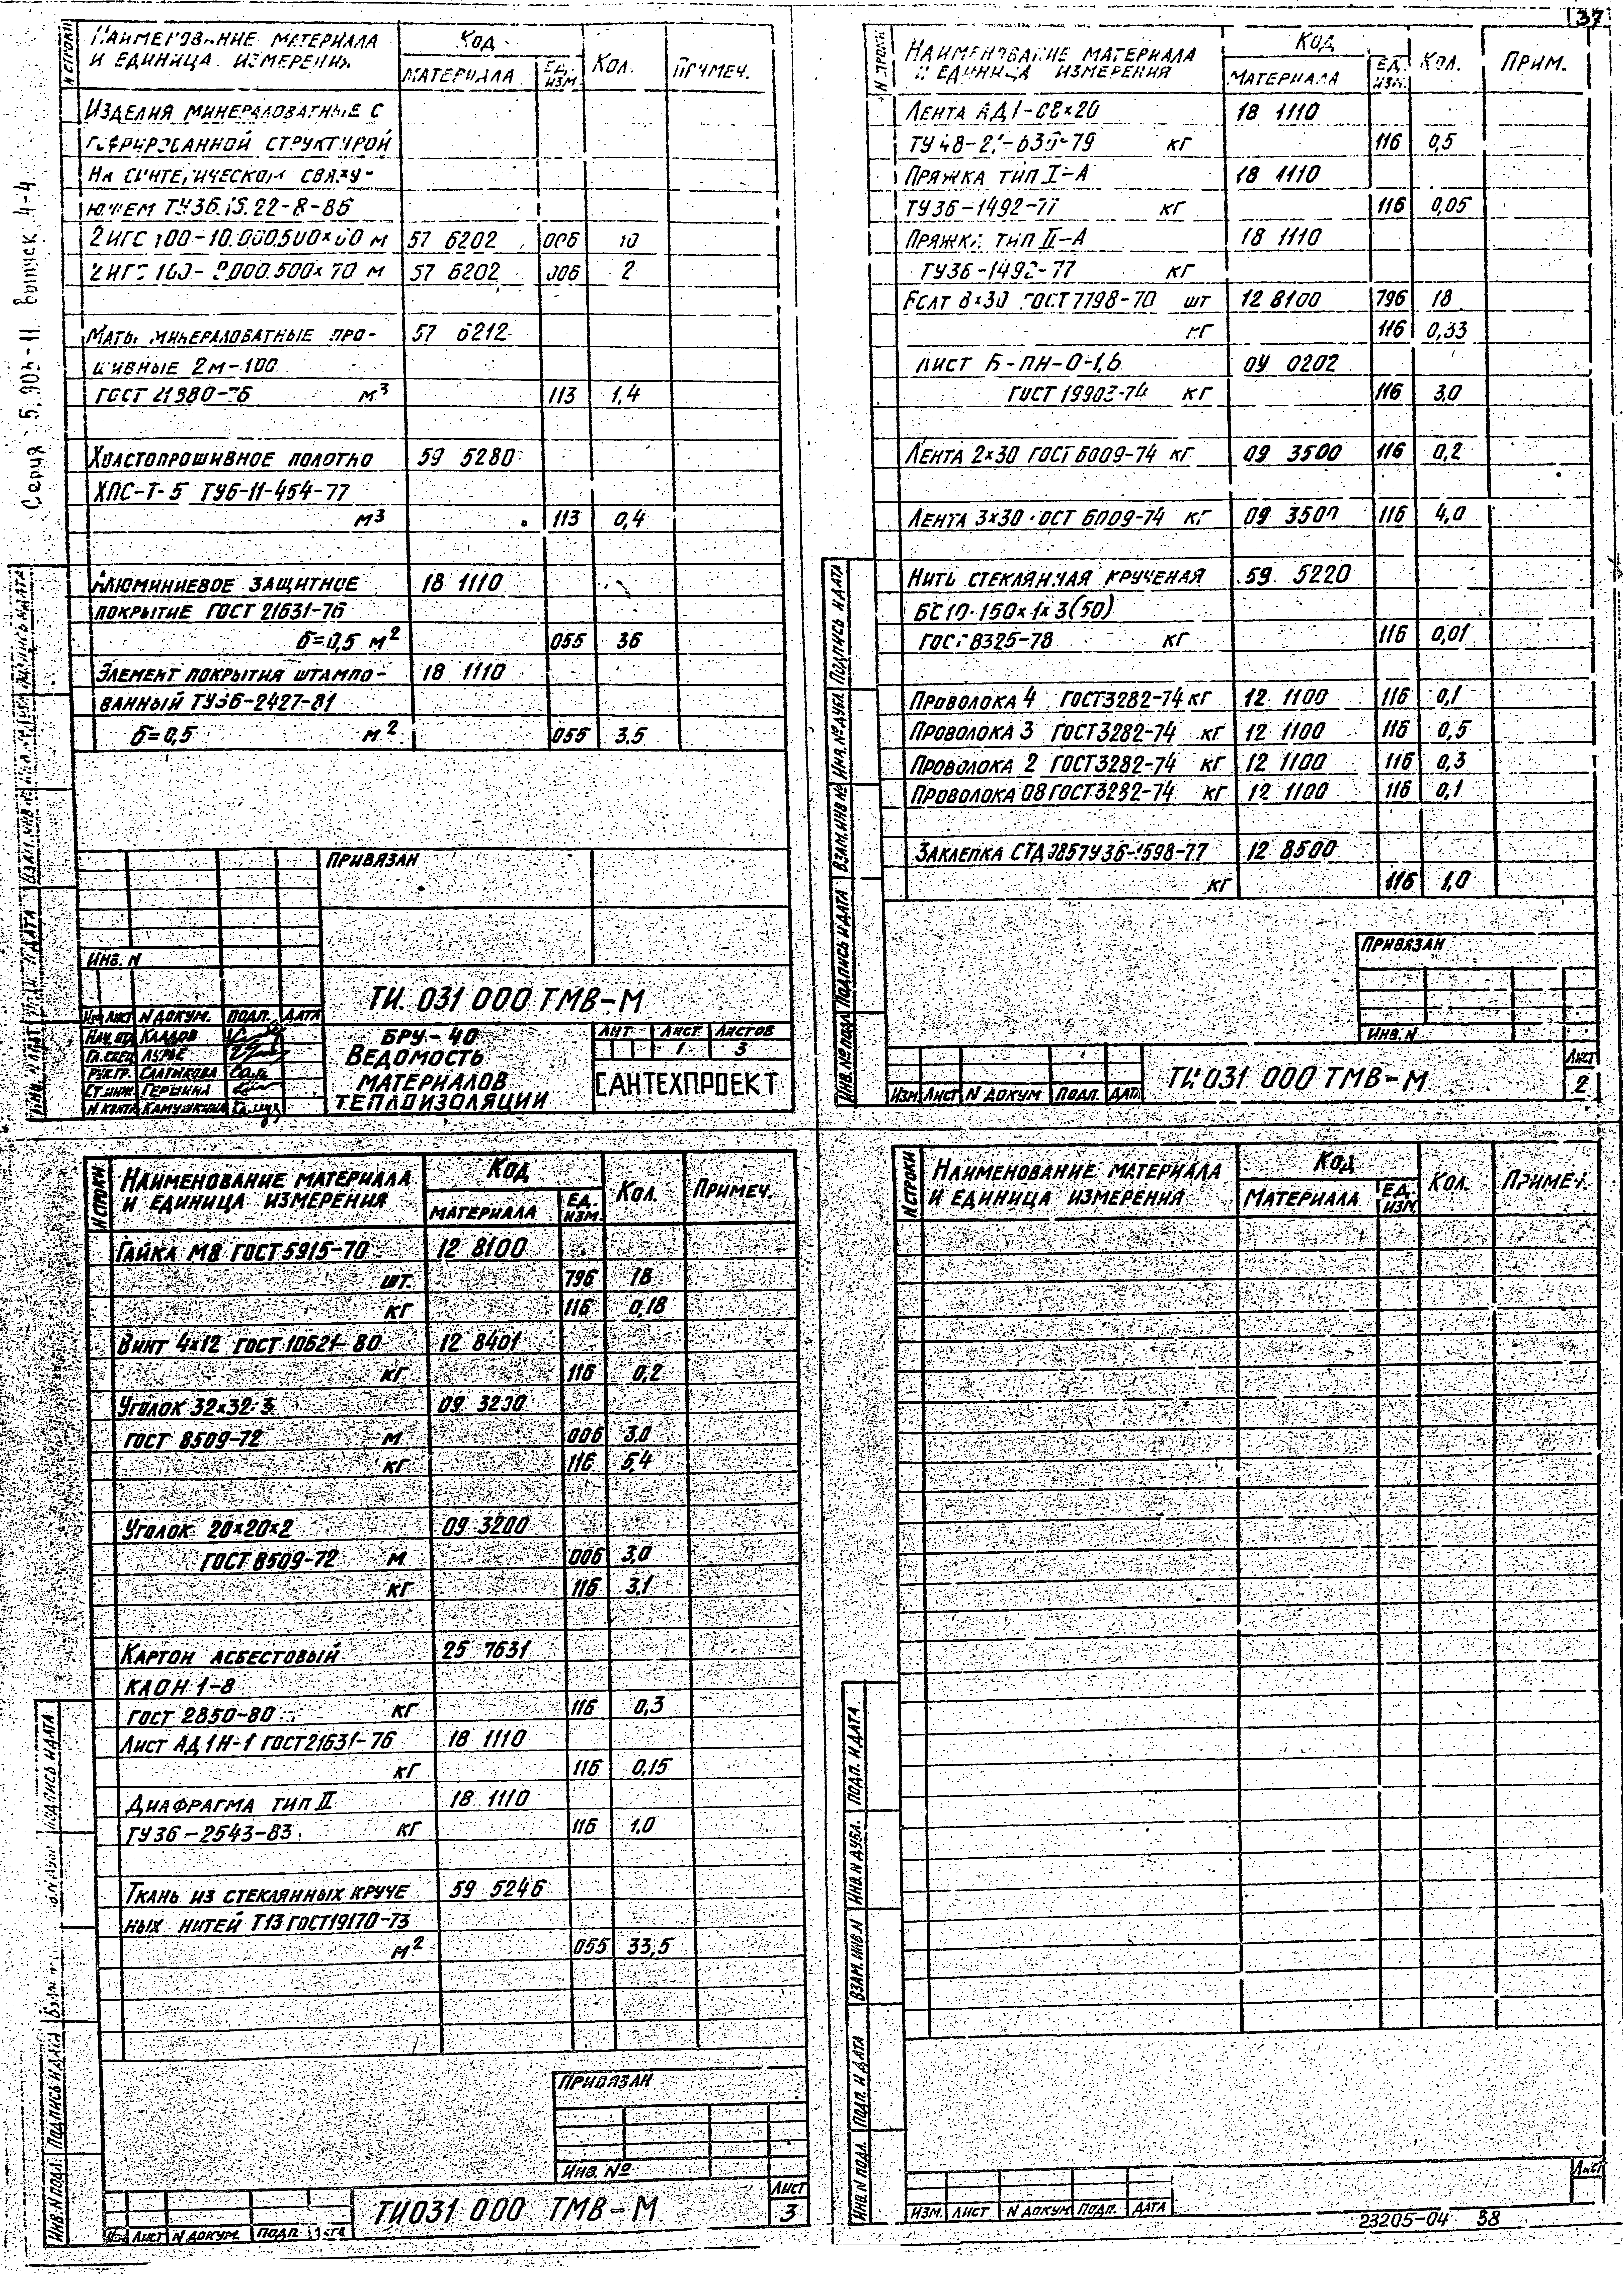 37
Серия 5.903-11 выпуск 4-4
N строки
Наименование материала
и единица измерения
Код
материала
Ед. изм.
Кол.
Примеч.
Изделия минераловатные с
гофрированной структурой
на синтетическом связу-
ющем ТУ36.16.22-8-86
2ИГС 100-10.000.500×60 м 57 6202 006 10
2ИГС 100- 2.000.500×70 м 57 6202 006 2
Маты минераловатные про- 57 6212
шивные 2м-100
ГОСТ 21880-76 м³ 113 1,4
Холстопрошивное полотно 59 5280
ХПС-Т-5 ТУ6-11-454-77
м³ 113 0,4
Алюминиевое защитное 18 1110
покрытие ГОСТ 21631-76
б=0,5 м² 055 36
Элемент покрытия штампо- 18 1110
ванный ТУ36-2427-81
б=0,5 м² 055 3.5
Привязан
Инв. N
ТИ 031 000 ТМВ-М
Изм Лист N докум. Подп. Дата
Нач. отд Кладов
Гл. спец Лурье
Рук.гр.
Ст.инж Гершина
Н.контр Камушкина
БРУ-40
Ведомость
материалов
теплоизоляции
Лит Лист Листов
1 3
САНТЕХПРОЕКТ
N строки
Наименование материала
и единица измерения
Код
материала
Ед. изм.
Кол.
Прим.
Лента АД1-08×20 18 1110
кг 116 0,5
Пряжка тип I-А 18 1110
ТУ36-1492-77 кг 116 0,05
Пряжка тип II-А 18 1110
ТУ36-1492-77 кг
Болт 8×30 ГОСТ 7798-70 шт 12 8100 796 18
кг 116 0,33
Лист Б-ПН-0-1,6 09 0202
ГОСТ 19903-74 кг 116 3,0
Лента 2×30 ГОСТ 6009-74 кг 09 3500 116 0,2
Лента 3×30 ГОСТ 6009-74 кг 09 3500 116 4,0
Нить стеклянная крученая 59 5220
БС10·160×1×3(50)
ГОСТ 8325-78 кг 116 0,01
Проволока 4 ГОСТ3282-74 кг 12 1100 116 0,1
Проволока 3 ГОСТ3282-74 кг 12 1100 116 0,5
Проволока 2 ГОСТ3282-74 кг 12 1100 116 0,3
Проволока 08 ГОСТ3282-74 кг 12 1100 116 0,1
Заклепка 12 8500
кг 116 1,0
Привязан
Инв. N
Изм Лист N докум Подп. Дата
ТИ 031 000 ТМВ-М
Лист
2
Инв. № подл. Подпись и дата Взам. инв № Инв. № дубл. Подпись и дата
N строки
Наименование материала
и единица измерения
Код
материала
Ед. изм.
Кол.
Примеч.
Гайка М8 ГОСТ 5915-70 12 8100
шт. 796 18
кг 116 0,18
Винт 4×12 ГОСТ 10621-80 12 8401
кг 116 0,2
Уголок 32×32×3 09 3200
ГОСТ 8509-72 м 006 3,0
кг 116 5,4
Уголок 20×20×2 09 3200
ГОСТ 8509-72 м 006 3,0
кг 116 3,1
Картон асбестовый 25 7631
КАОН 1-8
ГОСТ 2850-80 кг 116 0,3
Лист АД1Н-1 ГОСТ21631-76 18 1110
кг 116 0,15
Диафрагма тип II 18 1110
ТУ36-2543-83 кг 116 1,0
Ткань из стеклянных круче 59 5246
ных нитей Т13 ГОСТ19170-73
м² 055 33,5
Привязан
Инв. №
Изм Лист N докум. Подп Дата
ТИ031 000 ТМВ-М
Лист
3
Инв. N подл. Подпись и дата
N строки
Наименование материала
и единица измерения
Код
материала
Ед. изм.
Кол.
Примеч.
Инв. N подл. Подп. и дата Взам. инв. N Инв. N дубл. Подп. и дата
Изм. Лист N докум Подп. Дата
Лист
23205-04 38